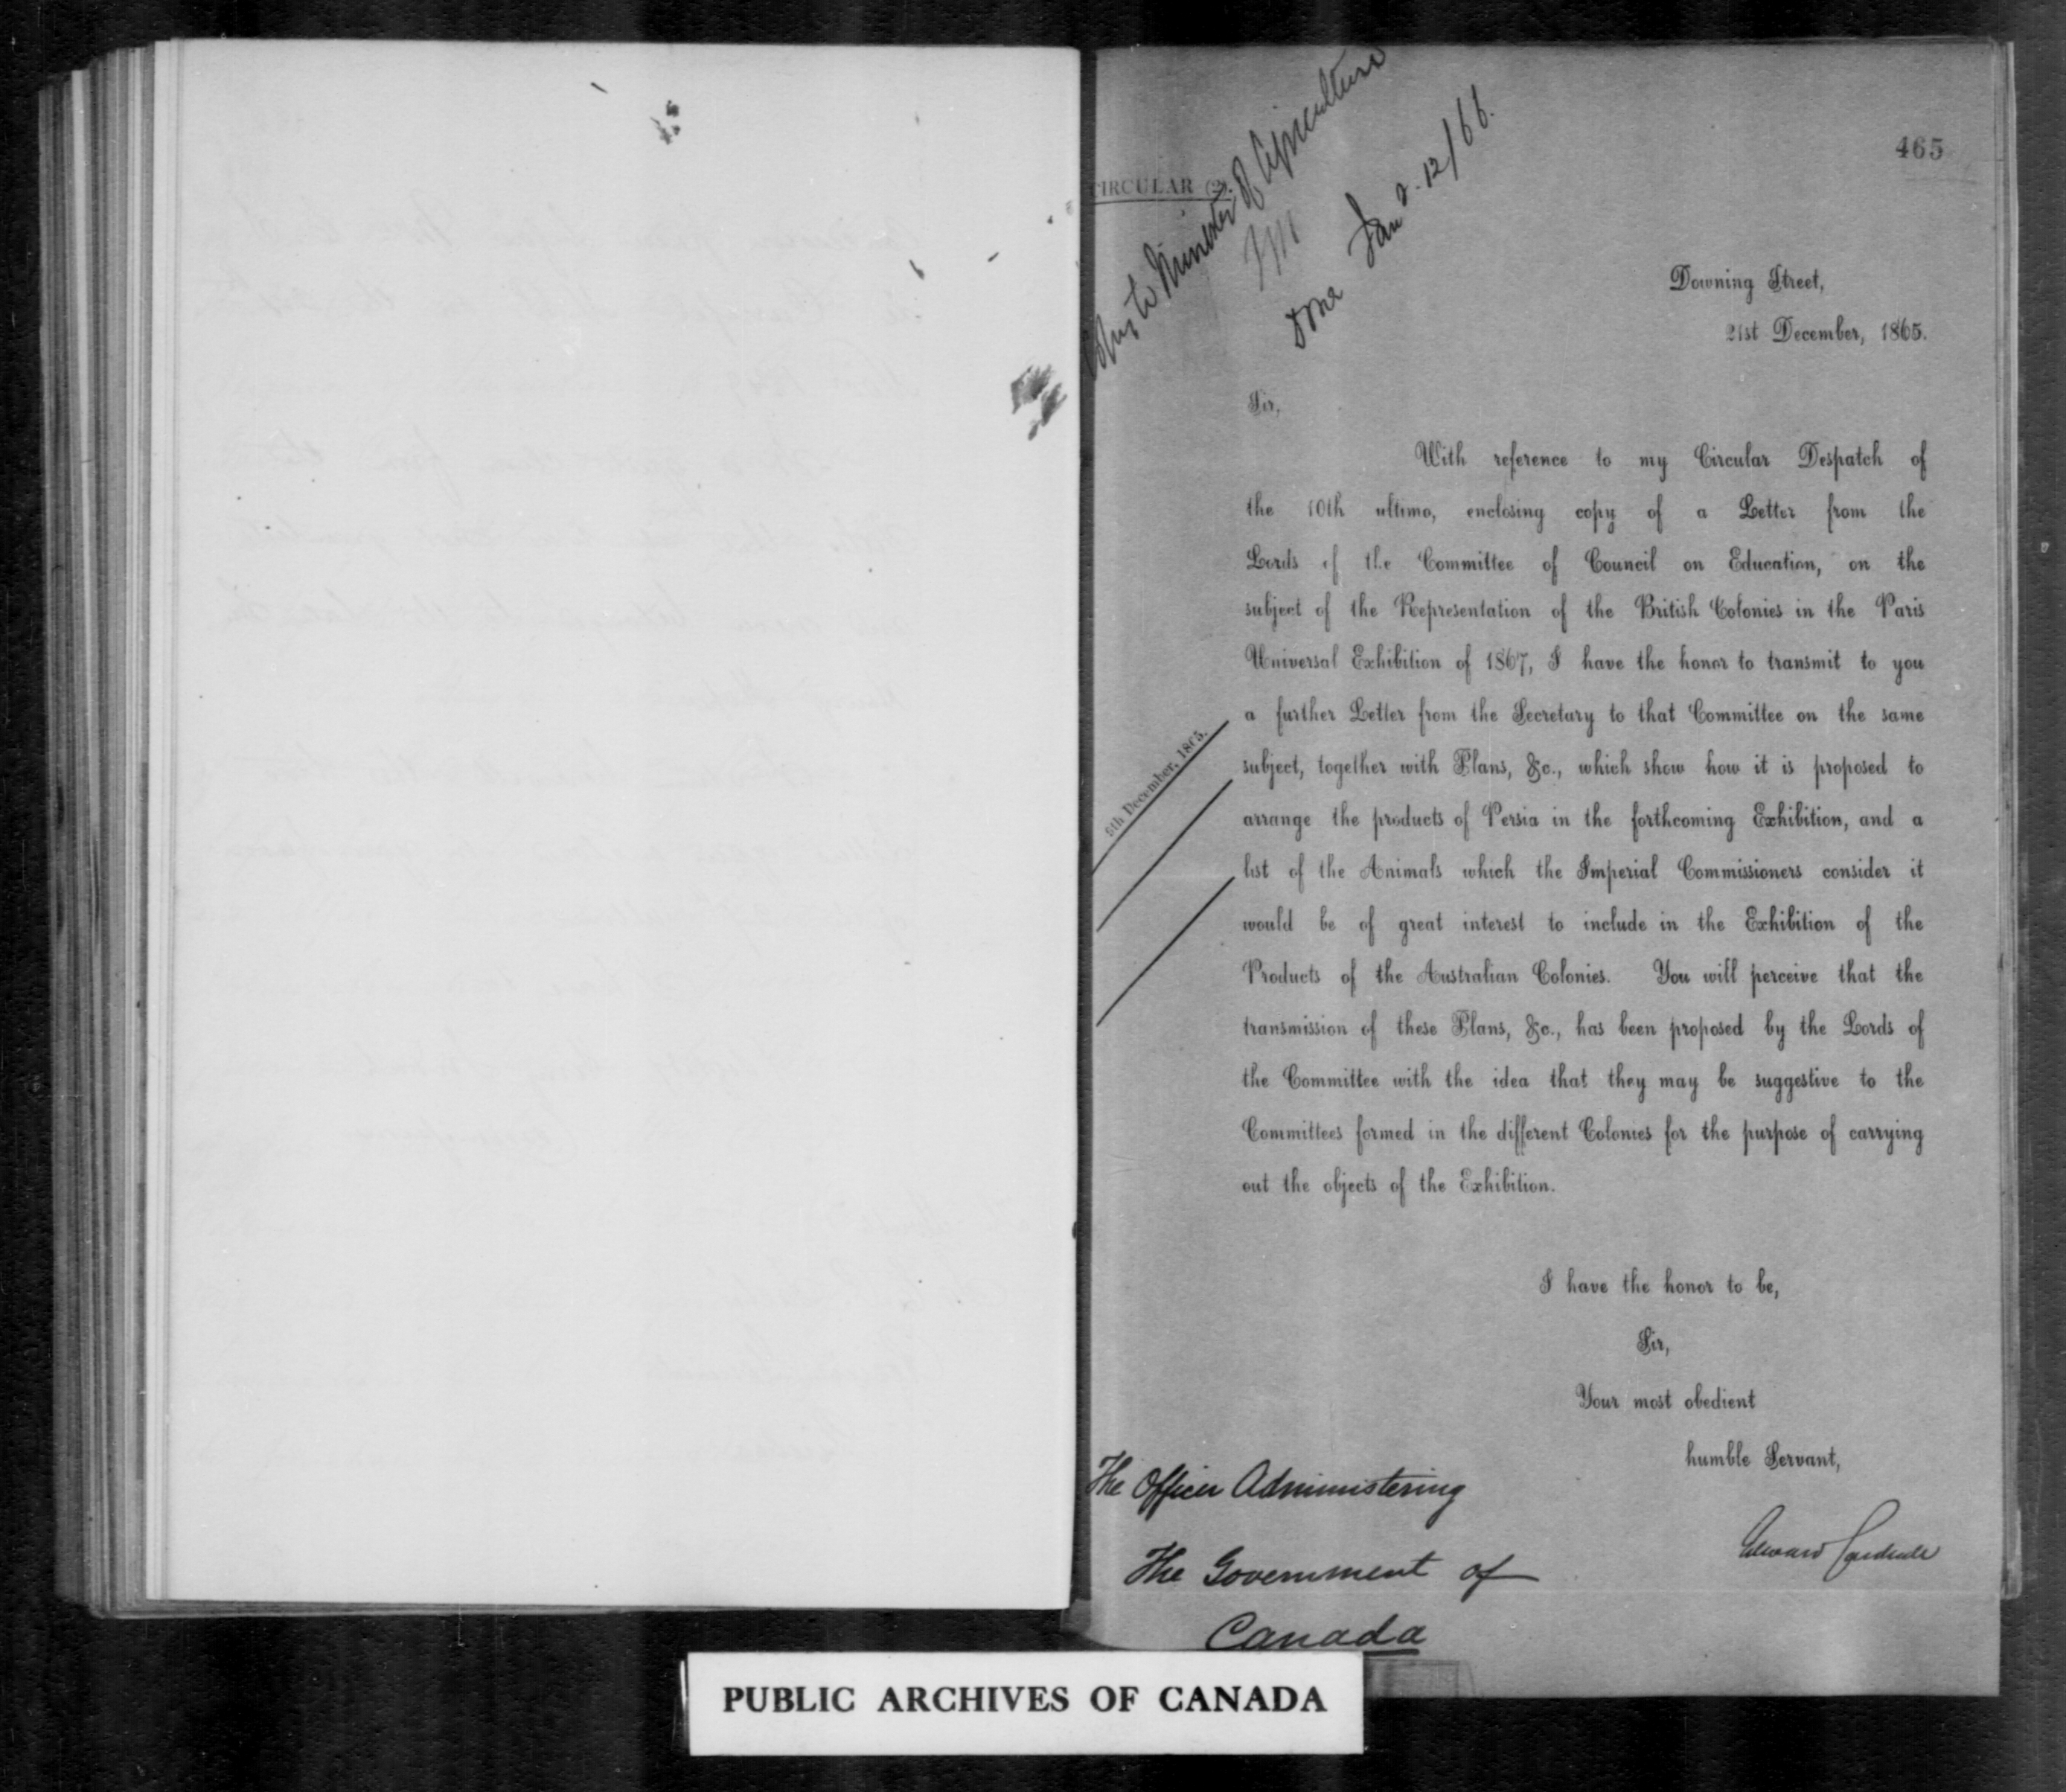 465
CIRCULAR (2).
Copy to Minister of Agriculture
done Jany. 12/66.
Downing Street,
21st December, 1865.
Sir,
With reference to my Circular Despatch of
the 10th ultimo, enclosing copy of a Letter from the
Lords of the Committee of Council on Education, on the
subject of the Representation of the British Colonies in the Paris
Universal Exhibition of 1867, I have the honor to transmit to you
a further Letter from the Secretary to that Committee on the same
subject, together with Plans, &c., which show how it is proposed to
arrange the products of Persia in the forthcoming Exhibition, and a
list of the Animals which the Imperial Commissioners consider it
would be of great interest to include in the Exhibition of the
Products of the Australian Colonies. You will perceive that the
transmission of these Plans, &c., has been proposed by the Lords of
the Committee with the idea that they may be suggestive to the
Committees formed in the different Colonies for the purpose of carrying
out the objects of the Exhibition.
December, 1865.
I have the honor to be,
Sir,
Your most obedient
humble Servant,
Edward Cardwell
The Officer Administering
The Government of
Canada
PUBLIC ARCHIVES OF CANADA